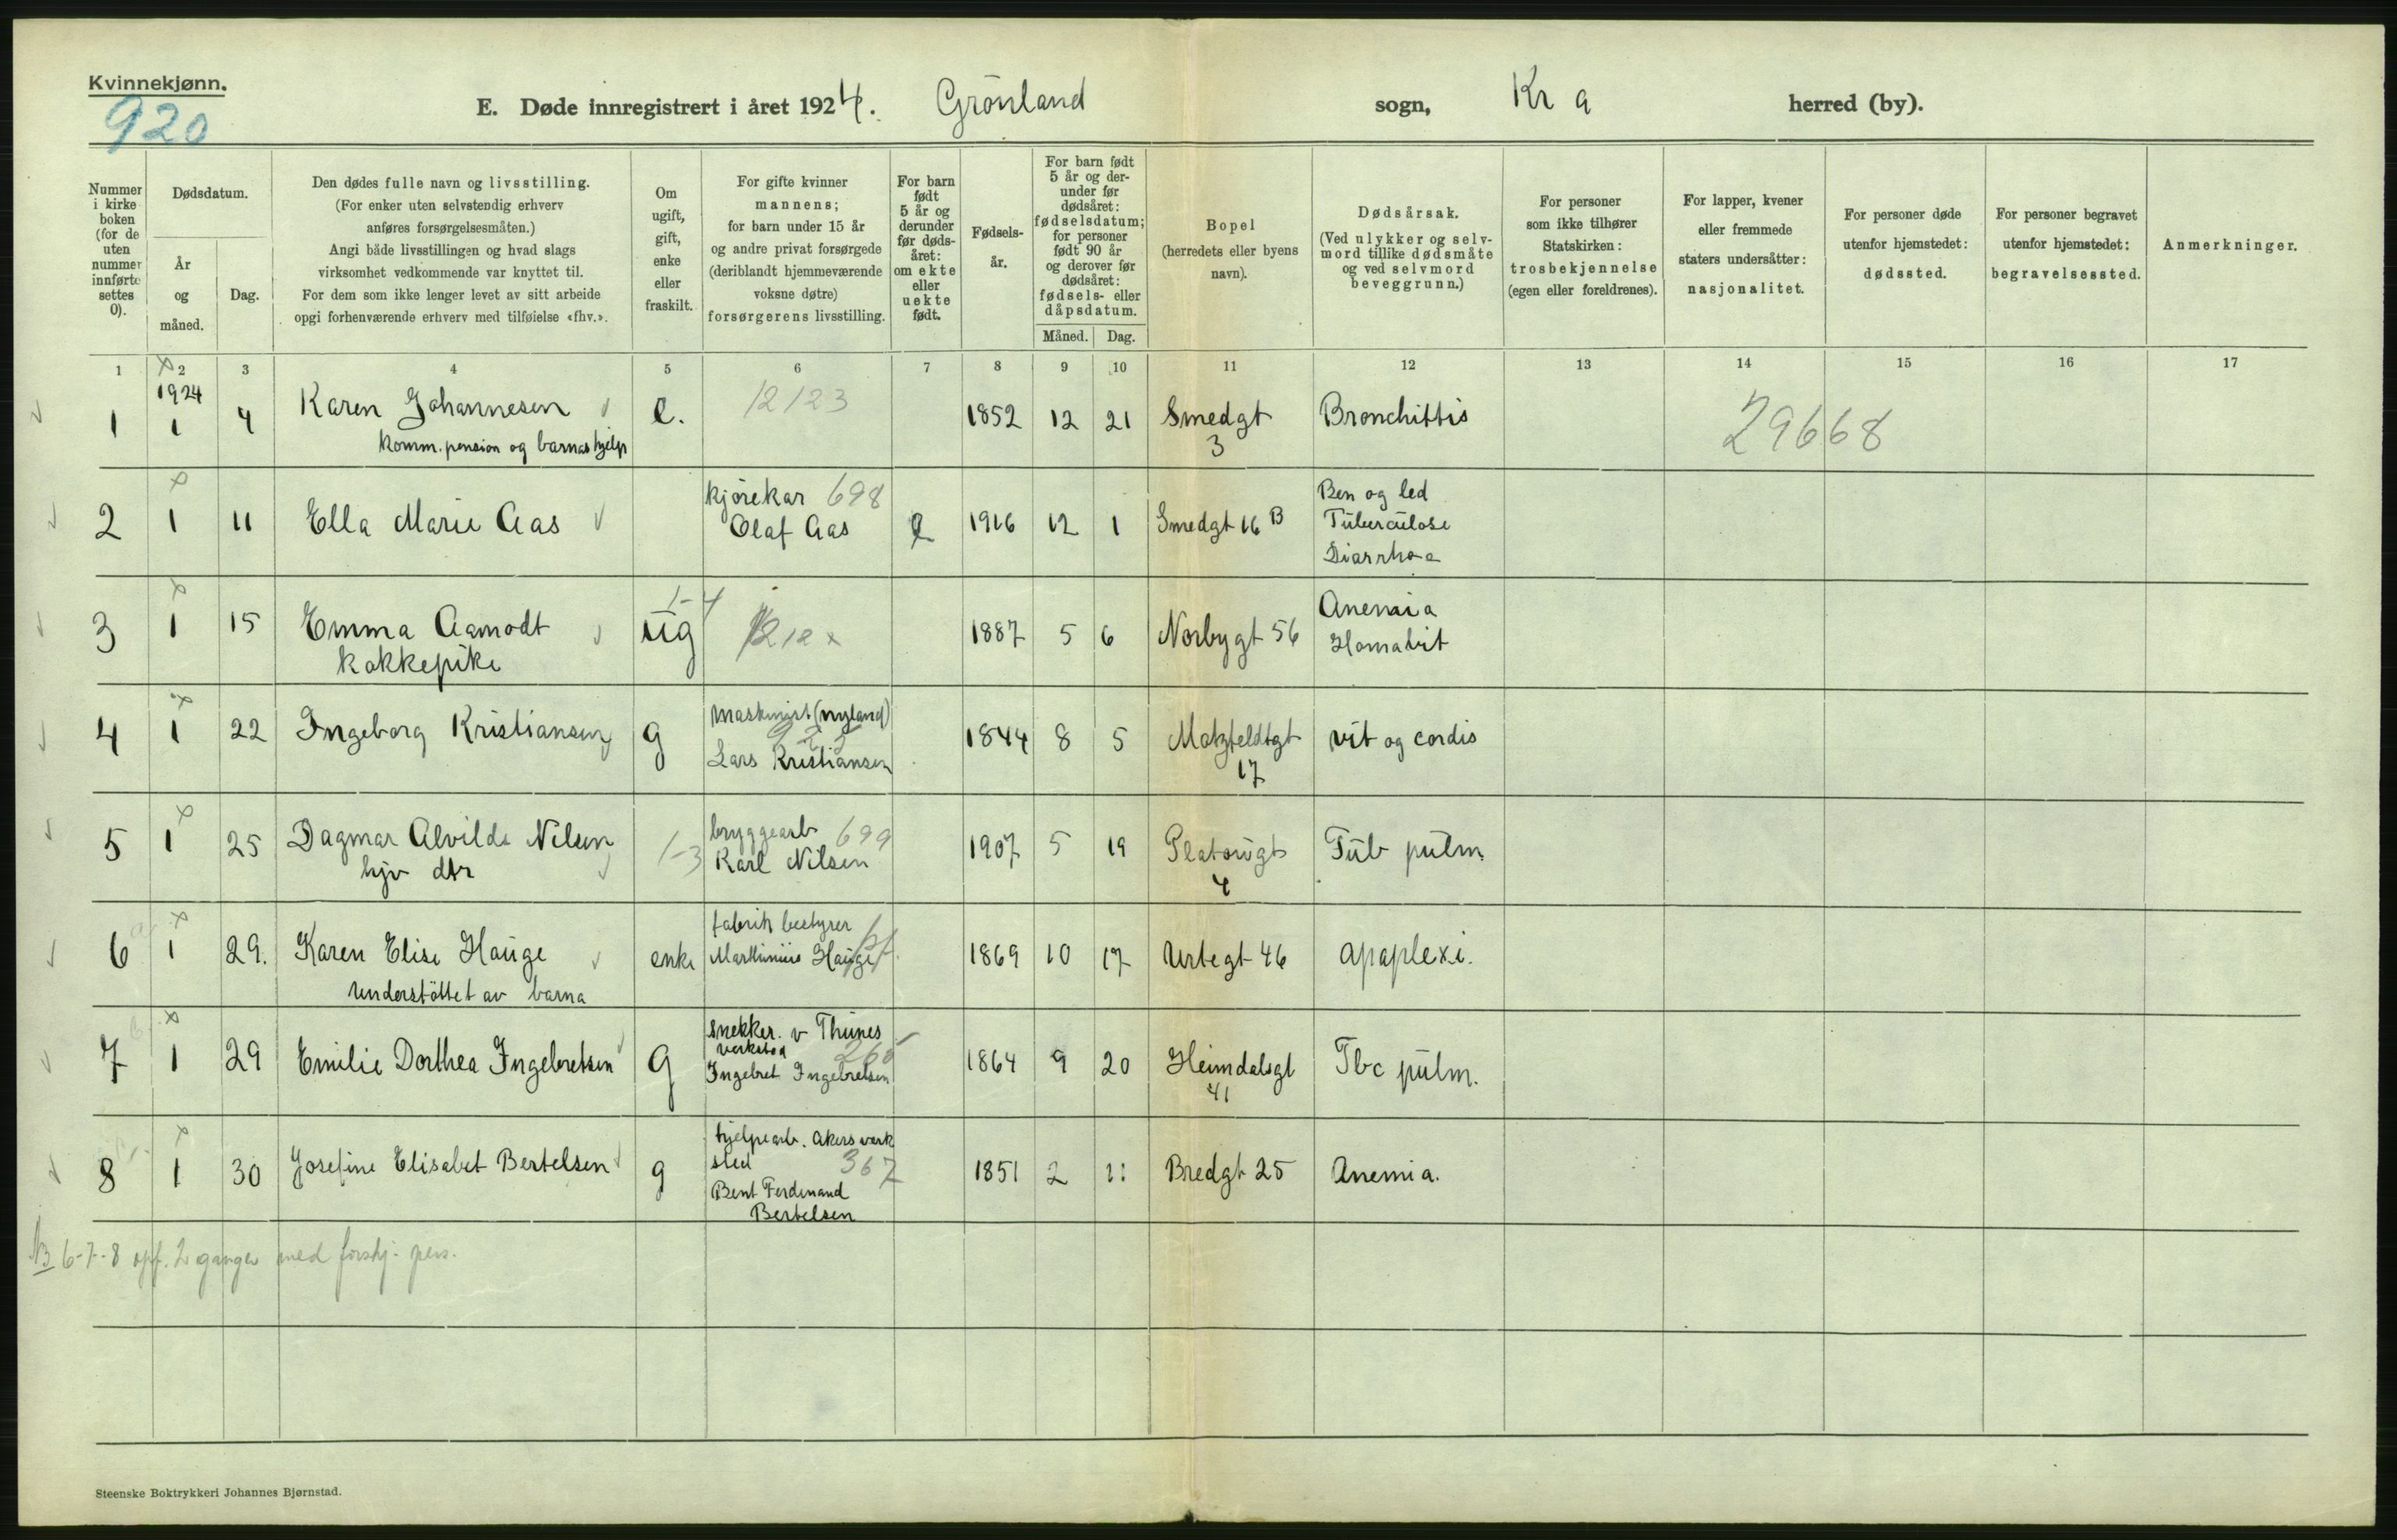 Kvinnekjønn.
920
E. Døde innregistrert i året 1924. Grönland sogn, Kr a herred (by).
Nummer i kirkeboken (for de uten nummer innførte settes 0).
Dødsdatum.
År og måned.
Dag.
Den dødes fulle navn og livsstilling.
(For enker uten selvstendig erhverv anføres forsørgelsesmåten.)
Angi både livsstillingen og hvad slags virksomhet vedkommende var knyttet til.
For dem som ikke lenger levet av sitt arbeide opgi forhenværende erhverv med tilføielse «fhv.».
Om ugift, gift, enke eller fraskilt.
For gifte kvinner mannens; for barn under 15 år og andre privat forsørgede (deriblandt hjemmeværende voksne døtre) forsørgerens livsstilling.
For barn født 5 år og derunder før dødsåret: om ekte eller uekte født.
Fødselsår.
For barn født 5 år og derunder før dødsåret: fødselsdatum; for personer født 90 år og derover før dødsåret: fødsels- eller dåpsdatum.
Måned. Dag.
Bopel (herredets eller byens navn).
Dødsårsak. (Ved ulykker og selvmord tillike dødsmåte og ved selvmord beveggrunn.)
For personer som ikke tilhører Statskirken: trosbekjennelse (egen eller foreldrenes).
For lapper, kvener eller fremmede staters undersåtter: nasjonalitet.
For personer døde utenfor hjemstedet: dødssted.
For personer begravet utenfor hjemstedet: begravelsessted.
Anmerkninger.
1 2 3 4 5 6 7 8 9 10 11 12 13 14 15 16 17
1924
1 1 4 Karen Johannesen e. 12123 1852 12 21 Smedgt 3 Bronchittis 29668
komm. pension og barnas hjelp
2 1 11 Ella Marie Aas kjörekar 698 Olaf Aas e 1916 12 1 Smedgt 16 B Ben og led Tuberculose Diarrhoa
3 1 15 Emma Aamodt ug 1-4 1887 5 6 Norbygt 56 Anemia
kokkepike
4 1 22 Ingeborg Kristiansen g Maskinist (nyland) 925 Lars Kristiansen 1844 8 5 Motzfeldtgt 17 vit og cordis
5 1 25 Dagmar Alvilde Nilsen 1-3 bryggearb 699 Karl Nilsen 1907 5 19 Platougt 4 Tub pulm.
hjv dtr
6 1 29. Karen Elise Hauge enke fabrik bestyrer Marthinius Hauge 1869 10 17 Urtegt 46 apaplexi.
Understöttet av barna
7 1 29 Emilie Dorthea Ingebretsen g snekker. v Thunes verksted 265 Ingebret Ingebretsen 1864 9 20 Heimdalsgt 41 Tbc pulm.
8 1 30 Josefine Elisabet Bertelsen g hjelpearb. Akers verksted 367 Bent Ferdinand Bertelsen 1851 2 11 Bredgt 25 Anemia.
NB 6-7-8 opf. 2 ganger med forskj. pers.
Steenske Boktrykkeri Johannes Bjørnstad.